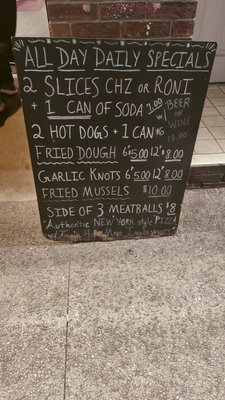 ALL DAY DAILY SPECIALS
2 SLICES CHZ or RONI
+ 1 CAN OF SODA 7.00 w/ BEER or WINE 10.00
2 HOT DOGS + 1 CAN $6
FRIED DOUGH 6" $5.00 12" $8.00
GARLIC KNOTS 6" $5.00 12" $8.00
FRIED MUSSELS $10.00
SIDE OF 3 MEATBALLS $8
Authentic NEW YORK style PIZZA
w/ Fresh Home Made Ingredients